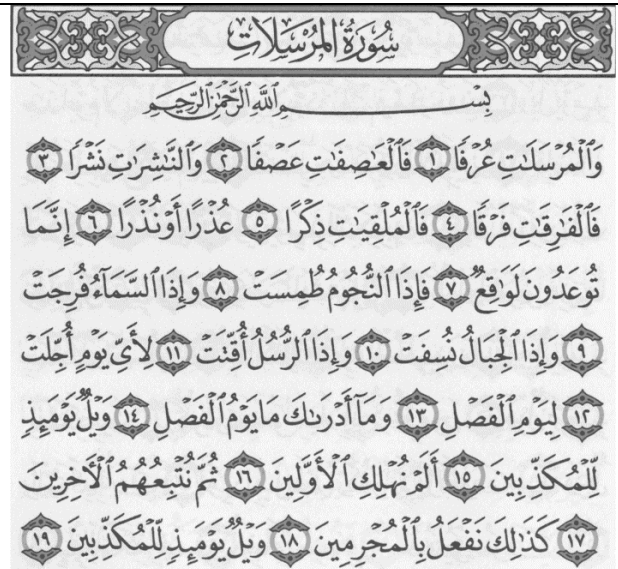 سُورَةُ المُرْسَلَات
بِسْمِ اللَّهِ الرَّحْمَٰنِ الرَّحِيمِ
وَٱلْمُرْسَلَٰتِ عُرْفًا ١ فَٱلْعَٰصِفَٰتِ عَصْفًا ٢ وَٱلنَّٰشِرَٰتِ نَشْرًا ٣
فَٱلْفَٰرِقَٰتِ فَرْقًا ٤ فَٱلْمُلْقِيَٰتِ ذِكْرًا ٥ عُذْرًا أَوْ نُذْرًا ٦ إِنَّمَا
تُوعَدُونَ لَوَٰقِعٌ ٧ فَإِذَا ٱلنُّجُومُ طُمِسَتْ ٨ وَإِذَا ٱلسَّمَآءُ فُرِجَتْ
٩ وَإِذَا ٱلْجِبَالُ نُسِفَتْ ١٠ وَإِذَا ٱلرُّسُلُ أُقِّتَتْ ١١ لِأَيِّ يَوْمٍ أُجِّلَتْ
١٢ لِيَوْمِ ٱلْفَصْلِ ١٣ وَمَآ أَدْرَىٰكَ مَا يَوْمُ ٱلْفَصْلِ ١٤ وَيْلٌ يَوْمَئِذٍ
لِّلْمُكَذِّبِينَ ١٥ أَلَمْ نُهْلِكِ ٱلْأَوَّلِينَ ١٦ ثُمَّ نُتْبِعُهُمُ ٱلْءَاخِرِينَ
١٧ كَذَٰلِكَ نَفْعَلُ بِٱلْمُجْرِمِينَ ١٨ وَيْلٌ يَوْمَئِذٍ لِّلْمُكَذِّبِينَ ١٩